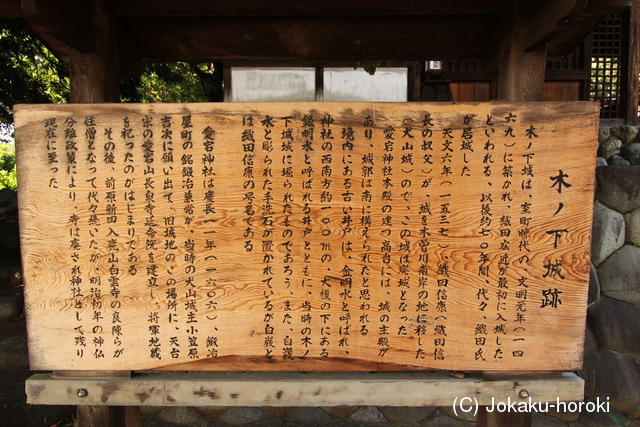 木ノ下城跡
木ノ下城は、室町時代の、文明元年(一四
六九)に築かれ、織田広近が最初に入城した
といわれる、以後約七〇年間、代々、織田氏
が居城した
天文六年(一五三七)織田信康(織田信
長の叔父)が、城を木曽川南岸の地に移した
(犬山城)ので、この城は廃城となった。
愛宕神社本殿の建つ高台には、城の主殿が
あり、城郭は南に構えられたと思われる
境内にある古い井戸は、金明水と呼ばれ、
神社の西南方約一〇〇mの、大榎の下にある
銀明水と呼ばれる井戸とともに、当時の木ノ
下城城に堀られたものであろう、また、白巌
水と彫られた手洗石が置かれているが白巌と
は織田信康の写名である
愛宕神社は慶長一一年(一六〇六)、鍛冶
屋町の銘鍛冶兼常が、当時の犬山城主小笠原
吉次に願い出て、旧城地のこの場所に、天台
宗の愛宕山長泉寺延命院を建立し、将軍地蔵
を祀ったのがはじまりである
その後、前原新田入鹿山白雲寺の良陳らが
住僧となって代々続いたが、明治初年の神仏
分離政策により、寺は廃され神社として残り
現在に至った
(C) Jokaku-horoki